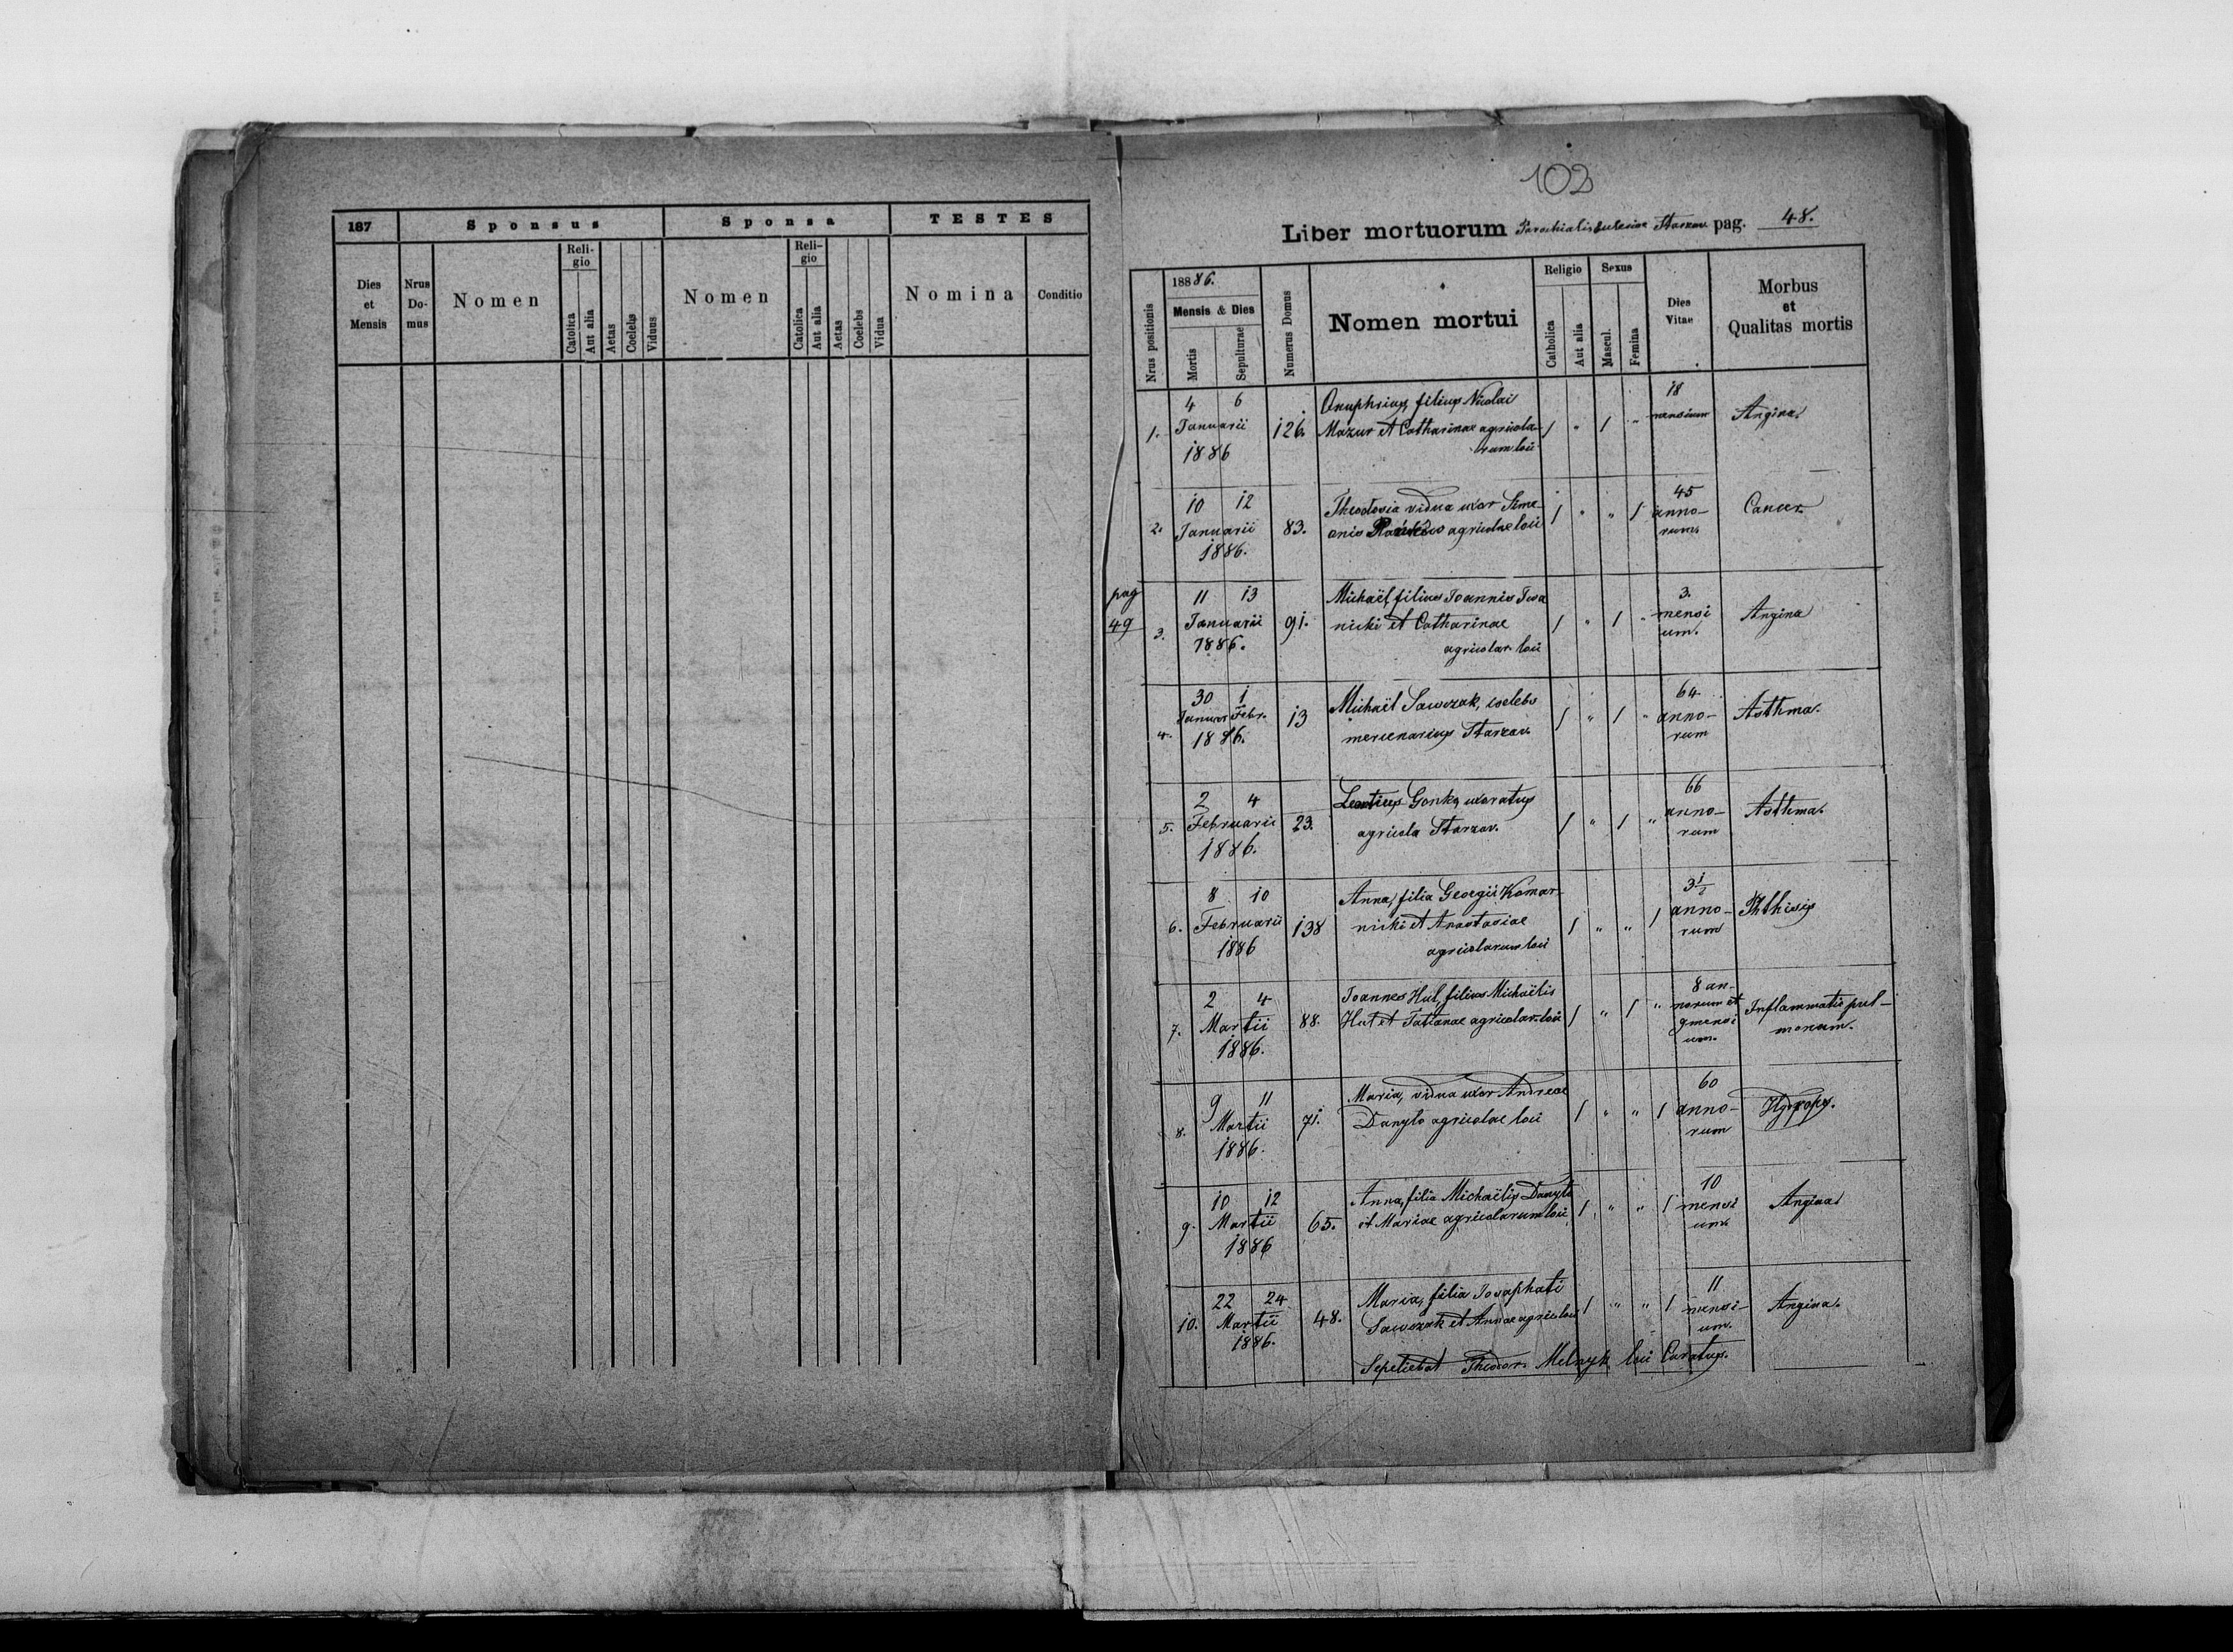 187
Sponsus
Sponsa
TESTES
Dies et Mensis
Nrus Domus
Nomen
Religio
Catolica
Aut alia
Aetas
Coelebs
Viduus
Nomen
Religio
Catolica
Aut alia
Aetas
Coelebs
Vidua
Nomina
Conditio
102
Liber mortuorum Parochialis Ecclesiae Starzav. pag. 48.
Nrus positionis
18886.
Mensis & Dies
Mortis
Sepulturae
Numerus Domus
Nomen mortui
Religio
Catholica
Aut alia
Sexus
Mascul.
Femina
Dies Vitae
Morbus
et
Qualitas mortis
4 6 Onuphrius, filius Nicolai 18
1. Januarii 126. Mazur et Catharinae agricola- 1 " 1 " mensium Angina.
1886 rum loci
10 12 Theodosia vidua uxor Sime- 45
2. Januarii 83. onis agricolae loci 1 " " 1 anno- Cancer.
1886. rum.
pag 11 13 Michaël, filius Joannis Iwa 3.
49 3. Januarii 91. nicki et Catharinae 1 " 1 " mensi Angina
1886. agricolar. loci um.
30 1 Michaël Sawczak, coelebs 64
4. Januar Febr. 13 mercenarius Starzav. 1 " 1 " anno- Asthma.
1886. rum
2 4 Leontius Gonko, uxoratus 66
5. Februarii 23. agricola Starzav. 1 " 1 " anno- Asthma.
1886. rum
8 10 Anna, filia Georgii Komar- 3 1/2
6. Februarii 138 nicki et Anastasiae 1 " " 1 anno- Phthisis
1886 agricolarum loci rum
2 4 Joannes Hul, filius Michaëlis 8 an-
7. Martii 88. Hul et Tatianae agricolar. loci 1 " 1 " norum et Inflammatio pul-
1886. 9 mensi monum.
um.
9 11 Maria, vidua uxor Andreae 60
8. Martii 71. Danylo agricolae loci 1 " " 1 anno- Hydrops.
1886. rum
10 12 Anna, filia Michaëlis Danylo 10
9. Martii 65. et Mariae agricolarum loci 1 " " 1 mensi Angina
1886 um.
22 24 Maria, filia Josaphati 11
10. Martii 48. Sawczak et Annae agricol. loci 1 " " 1 mensi- Angina.
1886. um.
Sepeliebat Theodor. Melnyk loci Curatus.